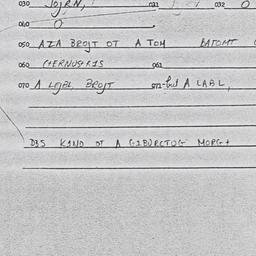 030 JOJRN, 031 032 O
040 O
050 AZA BROJT OT A TOM BATOMT
060 CHERNUSKIS 061
070 A LEJBL BROJT 071 but A LABL,
DOS KIND OT A GIBURCTOG MORG+